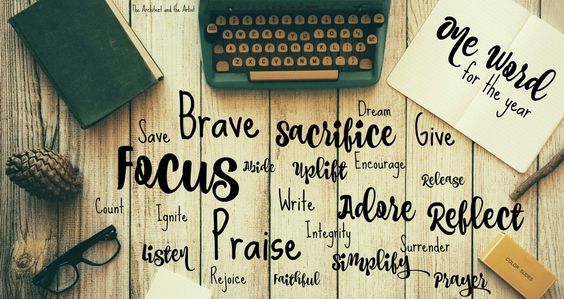 The Architect and the Artist
One Word
for the year
Dream
Save Brave Sacrifice Give
Focus Abide Uplift Encourage
Release
Count Ignite Write Adore Reflect
Praise Integrity
Listen Simplify Surrender
Rejoice Faithful Prayer
COLOR SLIDES